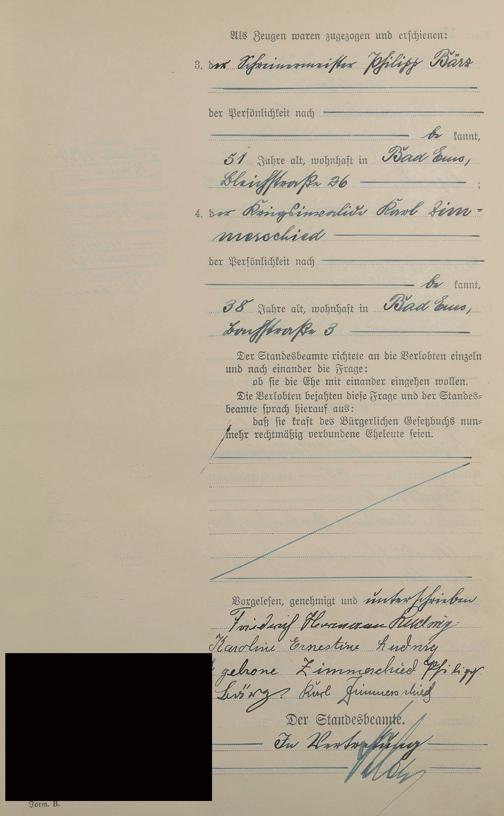 Als Zeugen waren zugezogen und erschienen:
3. der Schreinermeister Philipp Bärz
der Persönlichkeit nach
be kannt,
51 Jahre alt, wohnhaft in Bad Ems,
Bleichstraße 26 ;
4. der Kriegsinvalide Karl Zim=
merschied
der Persönlichkeit nach
be kannt,
38 Jahre alt, wohnhaft in Bad Ems,
Bachstraße 3
Der Standesbeamte richtete an die Verlobten einzeln
und nach einander die Frage:
ob sie die Ehe mit einander eingehen wollen.
Die Verlobten bejahten diese Frage und der Standes=
beamte sprach hierauf aus:
daß sie kraft des Bürgerlichen Gesetzbuchs nun=
mehr rechtmäßig verbundene Eheleute seien.
Vorgelesen, genehmigt und unterschrieben
Friedrich Hermann Ludwig
Karoline Ernestine Ludwig
geborne Zimmerschied Philipp
Bärz Karl Zimmerschied
Der Standesbeamte.
In Vertretung
Form. B.